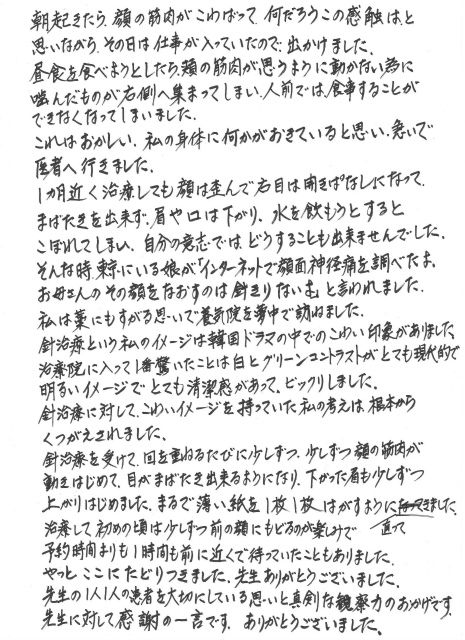 朝起きたら、顔の筋肉がこわばって、何だろうこの感触は、と
思いながら、その日は仕事が入っていたので、出かけました。
昼食を食べようとしたら、頬の筋肉が思うように動かない為に
噛んだものが右側へ集まってしまい、人前では、食事することが
できなくなってしまいました。
これはおかしい、私の身体に何かがおきていると思い、急いで
医者へ行きました。
1カ月近く治療しても顔は歪んで右目は開きぱなしになって、
まばたきを出来ず、眉や口は下がり、水を飲もうとすると
こぼれてしまい、自分の意志では、どうすることも出来ませんでした。
そんな時、東京にいる娘が「インターネットで顔面神経痛を調べたよ、
お母さんのその顔をなおすのは針きりないよ」と言われました。
私は藁にもすがる思いで養気院を夢中で訪ねました。
針治療という私のイメージは韓国ドラマの中でのこわい印象がありました。
治療院に入って1番驚いたことは白とグリーンコントラストがとても現代的で
明るいイメージでとても清潔感があって、ビックリしました。
針治療に対して、こわいイメージを持っていた私の考えは、根本から
くつがえされました。
針治療を受けて、回を重ねるたびに少しずつ、少しずつ顔の筋肉が
動きはじめて、目がまばたき出来るようになり、下がった眉も少しずつ
上がりはじめました。まるで薄い紙を1枚1枚はがすように
治療して初めの頃は少しずつ前の顔にもどるのが楽しみで 直って
予約時間よりも1時間も前に近くで待っていたこともありました。
やっとここにたどりつきました、先生ありがとうございました。
先生の1人1人の患者を大切にしている思いと真剣な観察力のおかげです。
先生に対して感謝の一言です。ありがとうございました。